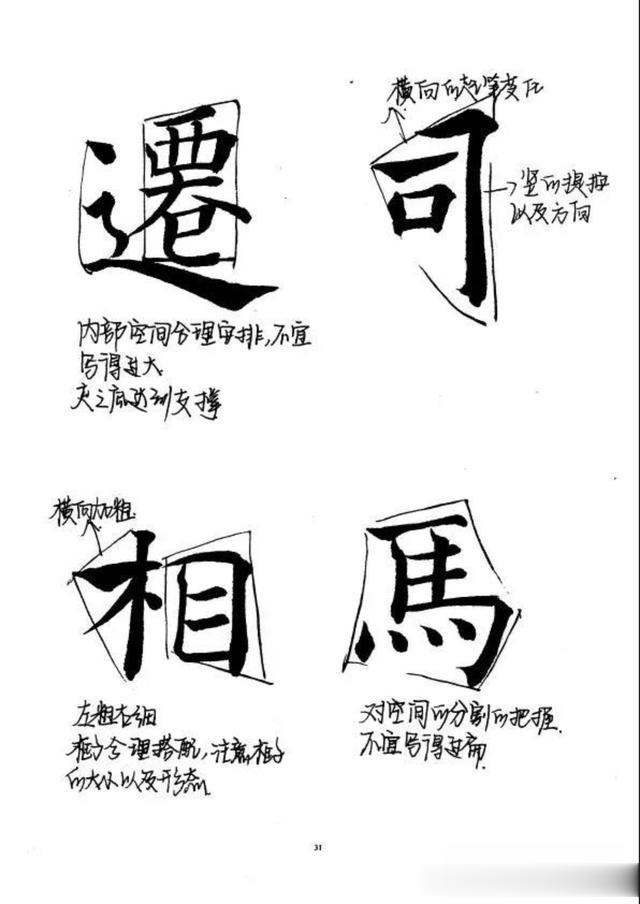 遷
内部空间合理安排,不宜
写得过大
夹之底达到支撑
横向的起笔变化
司
竖的提按
以及方向
横向加粗
相
左粗右细
框子合理搭配,注意框子
的大小以及形态
馬
对空间的分割的把握
不宜写得过扁
31